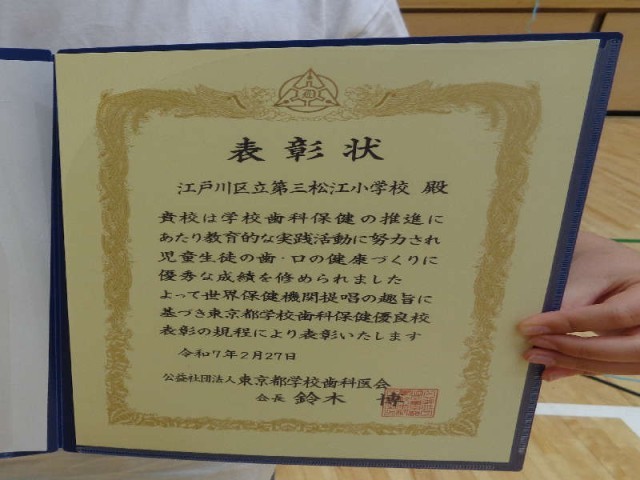 表彰状
江戸川区立第三松江小学校 殿
貴校は学校歯科保健の推進に
あたり教育的な実践活動に努力され
児童生徒の歯・口の健康づくりに
優秀な成績を修められました
よって世界保健機関提唱の趣旨に
基づき東京都学校歯科保健優良校
表彰の規程により表彰いたします
令和7年2月27日
公益社団法人 東京都学校歯科医会
会長 鈴木 博